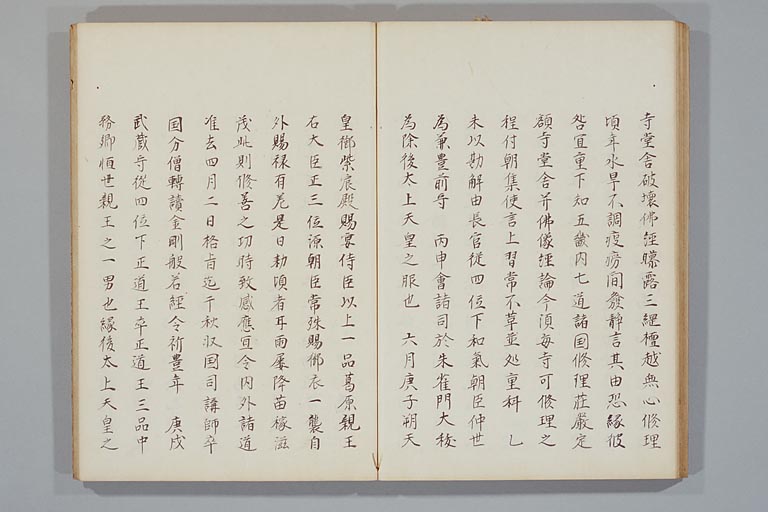 寺堂舎破壊佛經曝露三綱檀越無心修理
頃年水旱不調疫癘間發靜言其由恐縁彼
咎宜重下知五畿内七道諸国修理荘嚴定
額寺堂舎并佛像經論今須毎寺可修理之
程付朝集使言上習常不革並処重科　乙
未以勘解由長官從四位下和氣朝臣仲世
為兼豊前守　丙申會諸司於朱雀門大祓
為除後太上天皇之服也　六月庚子朔天
皇御紫宸殿賜宴侍臣以上一品葛原親王
右大臣正三位源朝臣常殊賜御衣一襲自
外賜禄有差是日勅頃者耳雨屢降苗稼滋
茂此則修善之功時致感應宜令内外諸道
准去四月二日格旨迄于秋収国司講師卒
国分僧轉讀金剛般若經令祈豊年　庚戌
武蔵守從四位下正道王卒正道王三品中
務卿恒世親王之一男也縁後太上天皇之